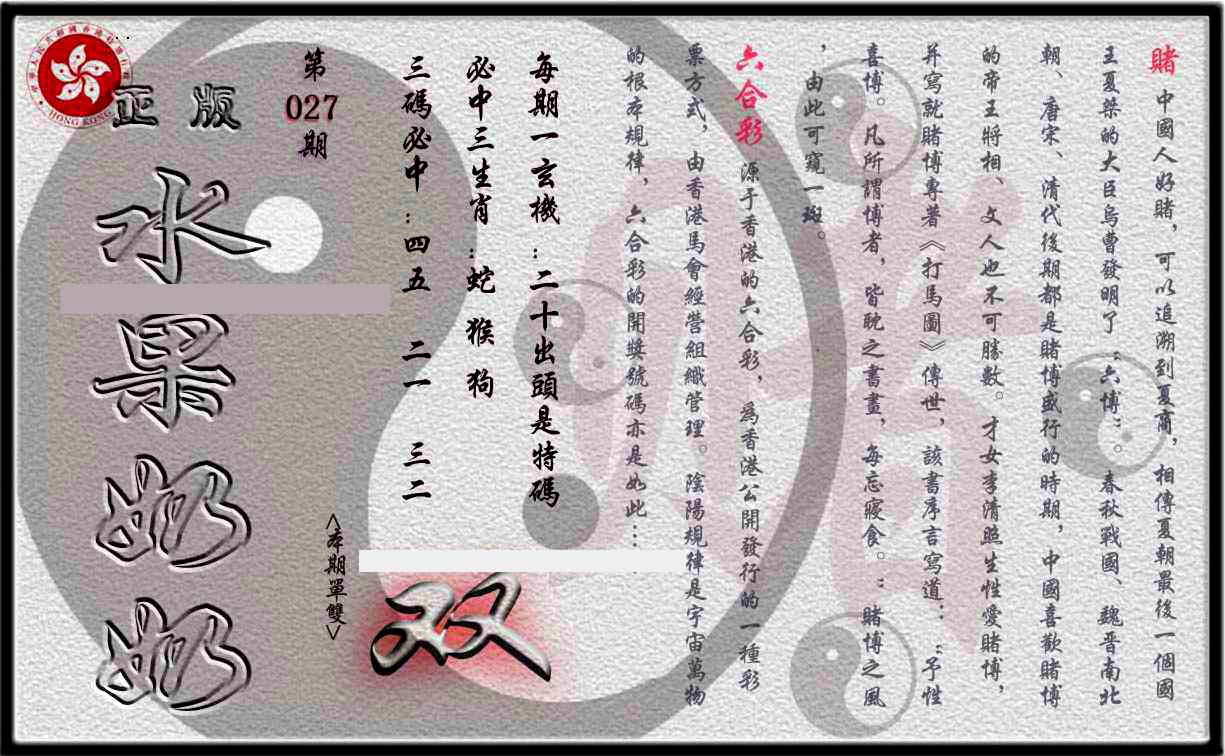 賭 中國人好賭，可以追溯到夏商，相傳夏朝最後一個國
王夏桀的大臣烏曹發明了“六博”。春秋戰國、魏晋南北
朝、唐宋、清代後期都是賭博盛行的時期，中國喜歡賭博
的帝王將相、文人也不可勝數。才女李清照生性愛賭博，
并寫就賭博專著《打馬圖》傳世，該書序言寫道：“予性
喜博。凡所謂博者，皆耽之書畫，每忘寢食。”賭博之風
，由此可窺一斑。
六合彩 源于香港的六合彩，為香港公開發行的一種彩
票方式，由香港馬會經營組織管理。陰陽規律是宇宙萬物
的根本規律，六合彩的開獎號碼亦是如此……
每期一玄機：二十出頭是特碼
必中三生肖：蛇 猴 狗
三碼必中：四五 二一 三二
第
027
期
<本期單雙>
双
正版
水果奶奶
HONG KONG